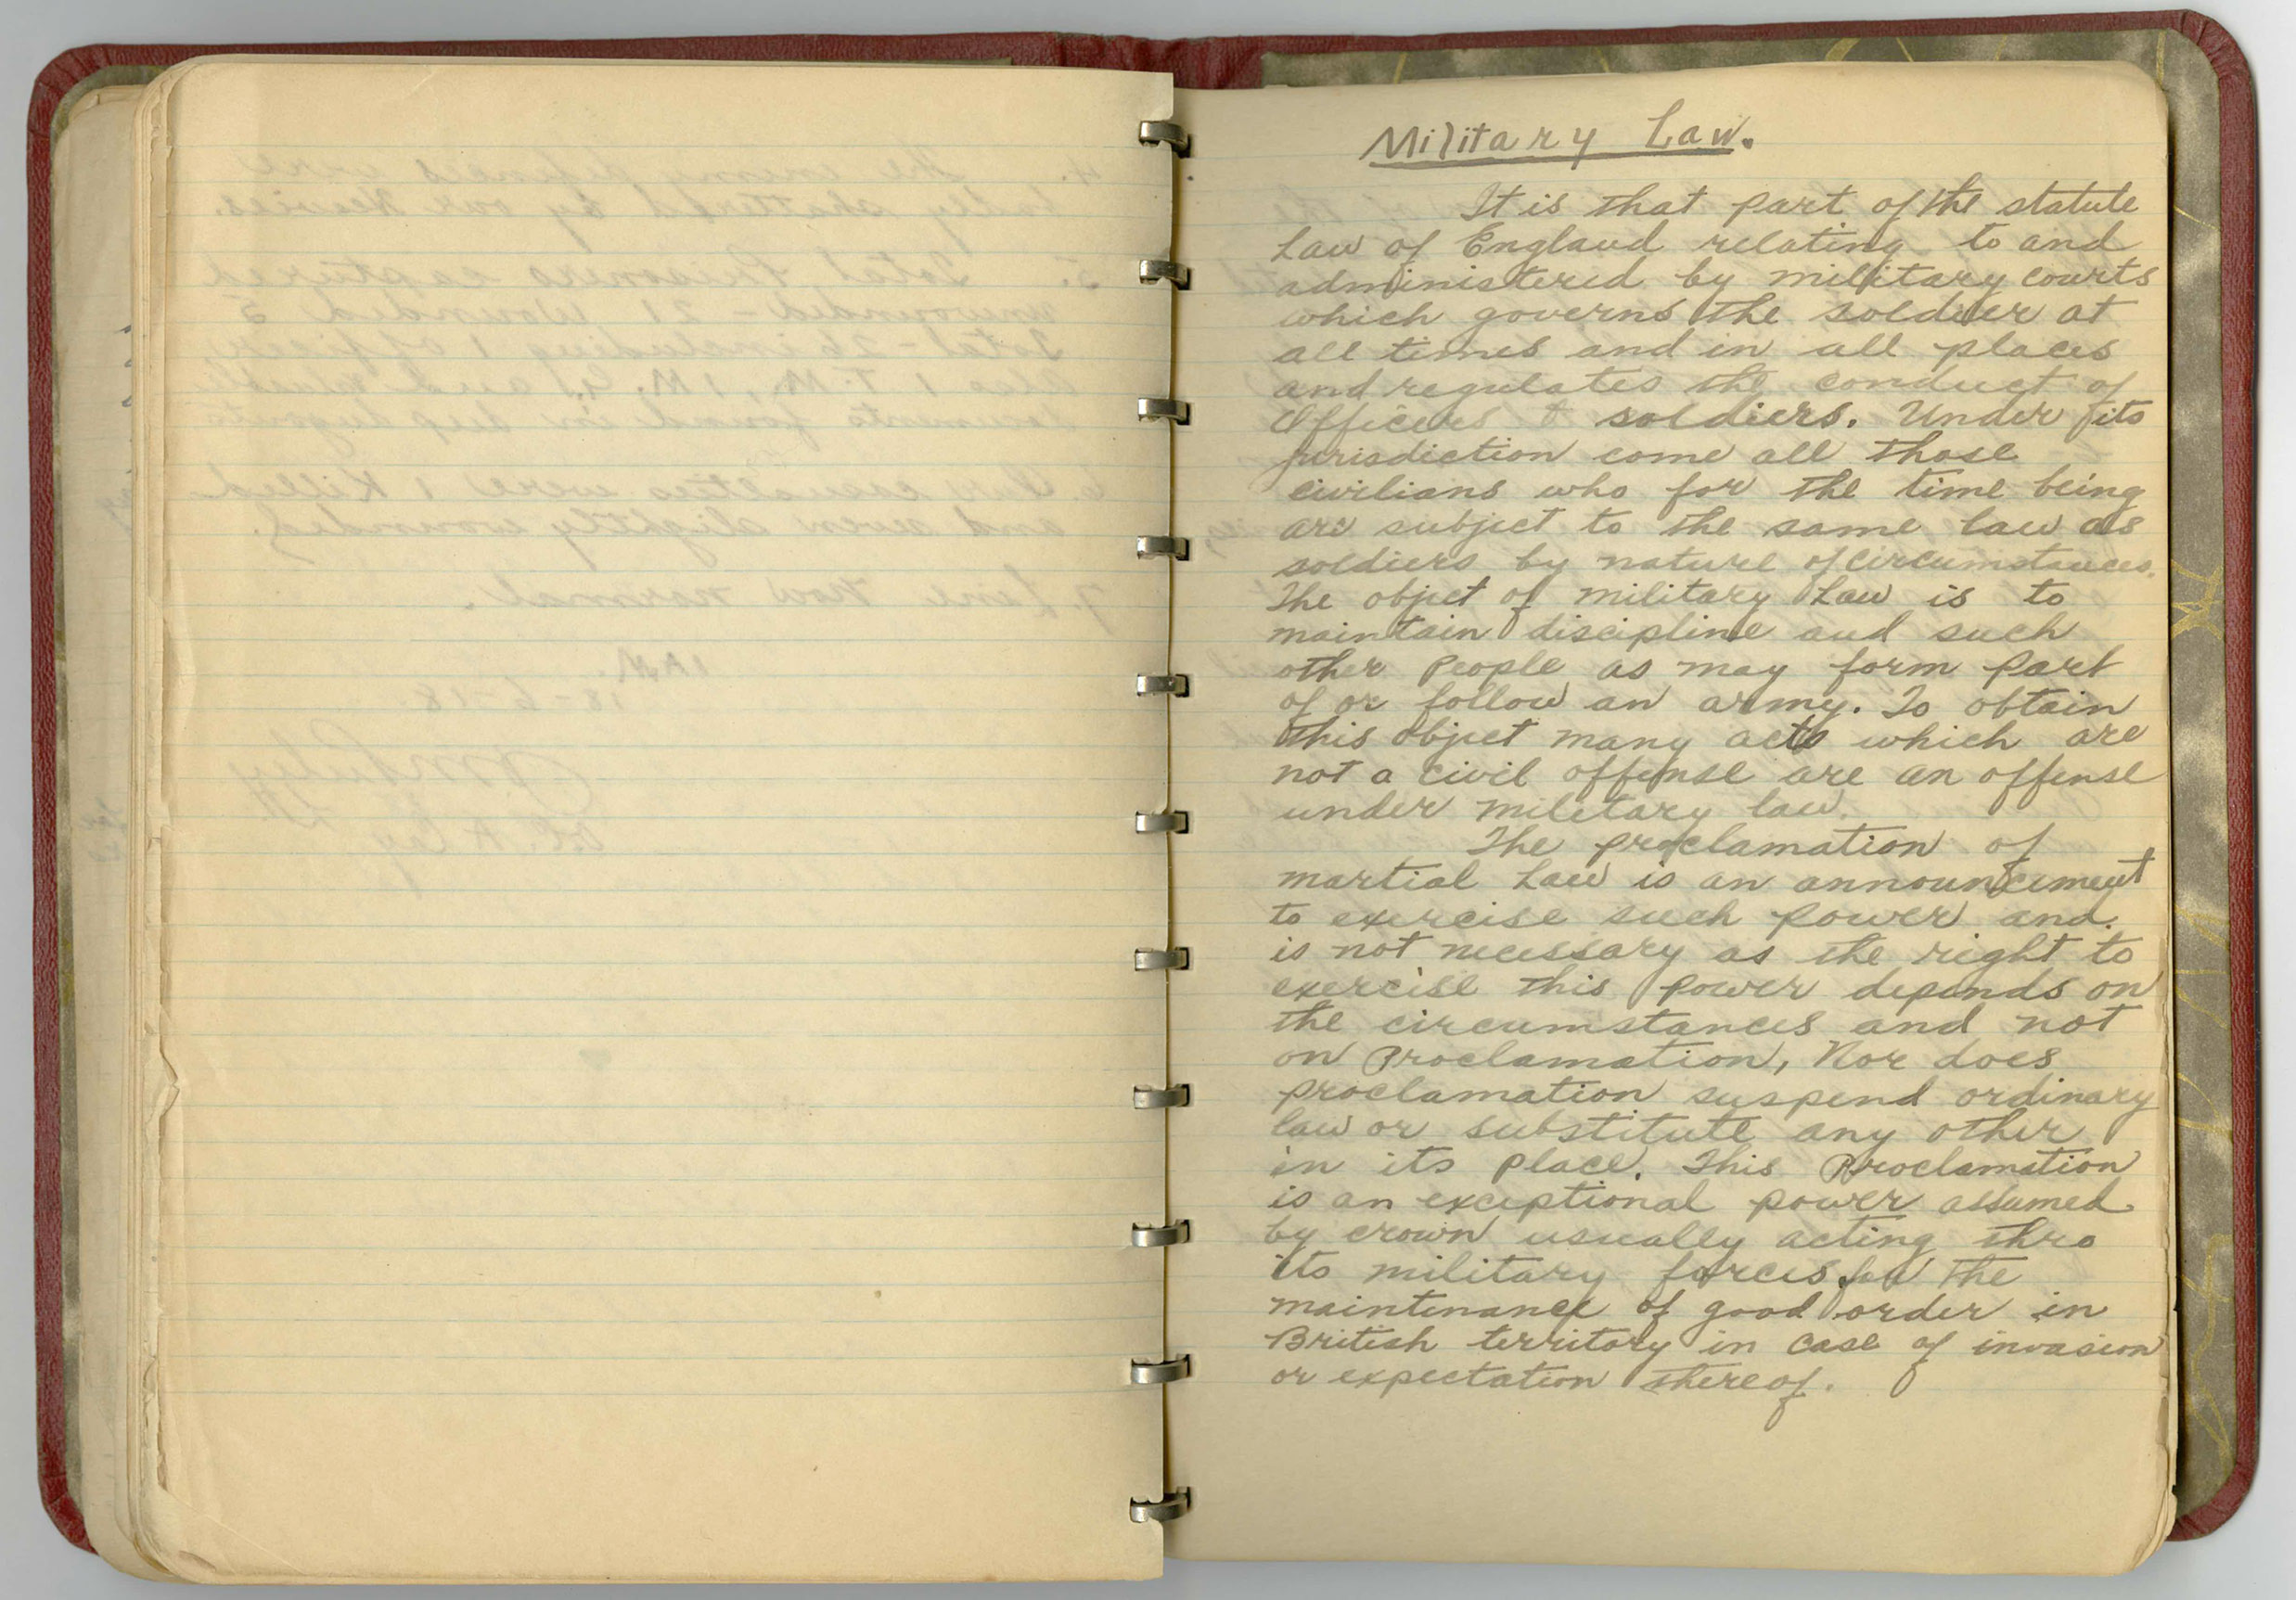 Military Law.
It is that part of the statute
Law of England relating to and
administered by military courts
which governs the soldier at
all times and in all places
and regulates the conduct of
Officers & soldiers. Under its
jurisdiction come all those
civilians who for the time being
are subject to the same law as
soldiers by nature of circumstances.
The object of military Law is to
maintain discipline and such
other People as may form part
of or follow an army. To obtain
this object many acts which are
not a civil offense are an offense
under military law.
The proclamation of
martial Law is an announcement
to exercise such power and
is not necessary as the right to
exercise this power depends on
the circumstances and not
on Proclamation, Nor does
proclamation suspend ordinary
law or substitute any other
in its place. This Proclamation
is an exceptional power assumed
by crown usually acting thro
its military forces for the
maintenance of good order in
British territory in case of invasion
or expectation thereof.